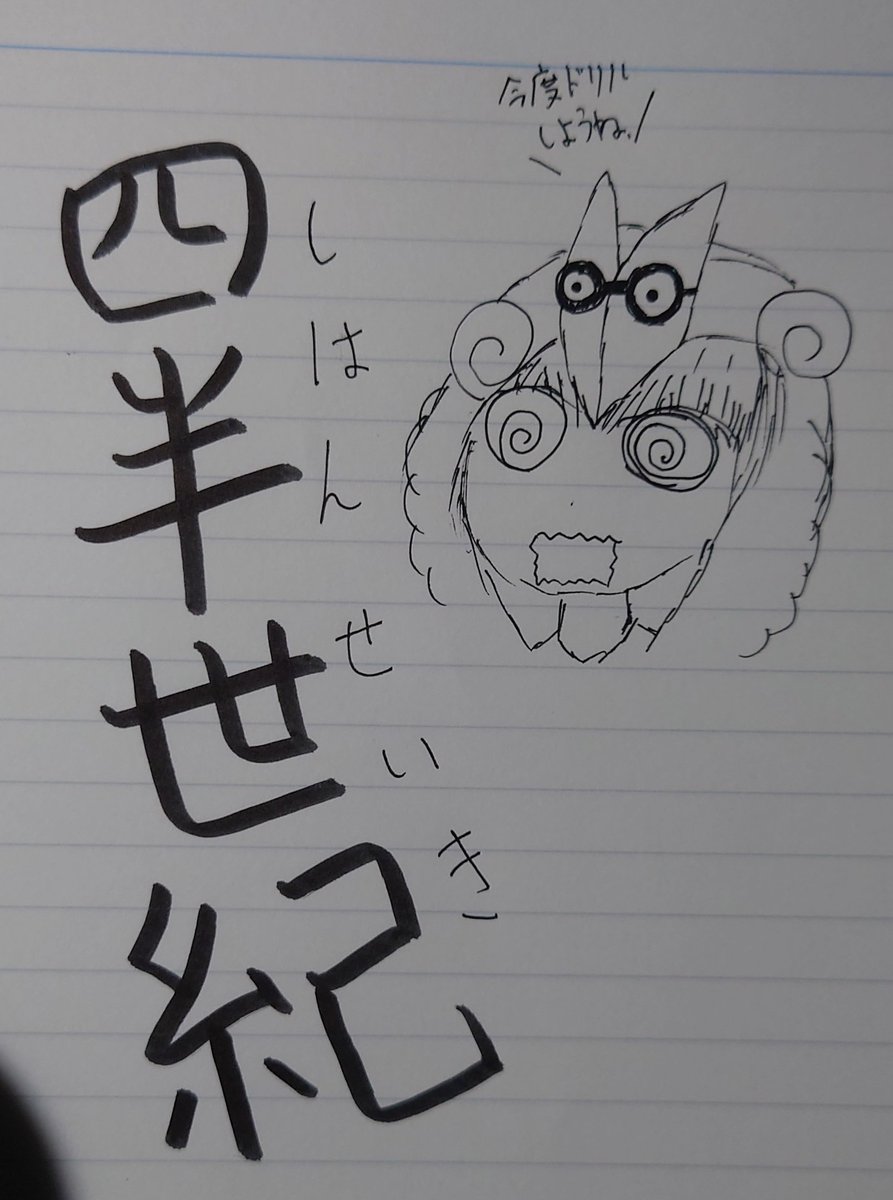 今度ドリル
しようね!
四半世紀
しはんせいき